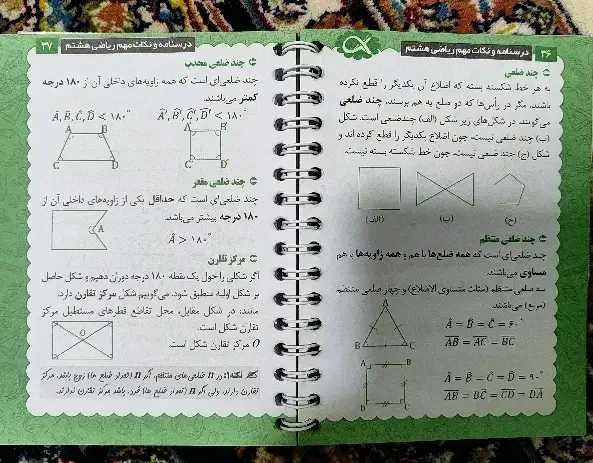 ۳۶ درسنامه و نکات مهم ریاضی هشتم
چند ضلعی
به هر خط شکسته بسته که اضلاع آن یکدیگر را قطع نکرده
باشند، مگر در رأس‌ها که دو ضلع به هم برسند، چند ضلعی
می‌گویند در شکل‌های زیر شکل (الف) چندضلعی است. شکل
(ب) چند ضلعی نیست، چون اضلاع یکدیگر را قطع کرده اند و
شکل (ج) چند ضلعی نیست، چون خط شکسته بسته نیست.
(ج) (ب) (الف)
چند ضلعی منتظم
چند ضلعی‌ای است که همه ضلع‌ها با هم و همه زاویه‌ها با هم
مساوی می‌باشند.
سه ضلعی منتظم (مثلث متساوی الاضلاع) و چهار ضلعی منتظم
(مربع) می‌باشند.
A
B C
Â = B̂ = Ĉ = ۶۰°
AB = AC = BC
A B
D C
Â = B̂ = Ĉ = D̂ = ۹۰°
AB = BC = CD = DA
درسنامه و نکات مهم ریاضی هشتم ۳۷
چند ضلعی محدب
چند ضلعی‌ای است که همه زاویه‌های داخلی آن از ۱۸۰ درجه
کمتر می‌باشند.
Â, B̂, Ĉ, D̂ < ۱۸۰° Â', B̂', Ĉ', D̂' < ۱۸۰°
A B A' B'
C D C' D'
چند ضلعی مقعر
چند ضلعی‌ای است که حداقل یکی از زاویه‌های داخلی آن از
۱۸۰ درجه بیشتر می‌باشد.
Â > ۱۸۰°
A
مرکز تقارن
اگر شکلی را حول یک نقطه ۱۸۰ درجه دوران دهیم و شکل حاصل
بر شکل اولیه منطبق شود، می‌گوییم شکل مرکز تقارن دارد.
مانند: در شکل مقابل، محل تقاطع قطرهای مستطیل مرکز
تقارن شکل است.
O مرکز تقارن شکل است.
O
نکته: در n ضلعی‌های منتظم، اگر n (تعداد ضلع ها) زوج باشد، مرکز
تقارن دارند، ولی اگر n (تعداد ضلع ها) فرد باشد مرکز تقارن ندارند.